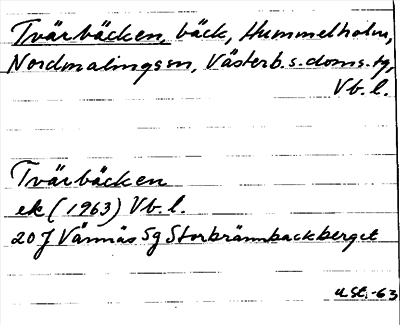 Tvärbäcken, bäck, Hummelholm,
Nordmalingssn, Västerb. s. doms. tg,
Vb. l.
Tvärbäcken
ek (1963) Vb. l.
20J Vännäs 5g Storbrännbackberget
u St. -63